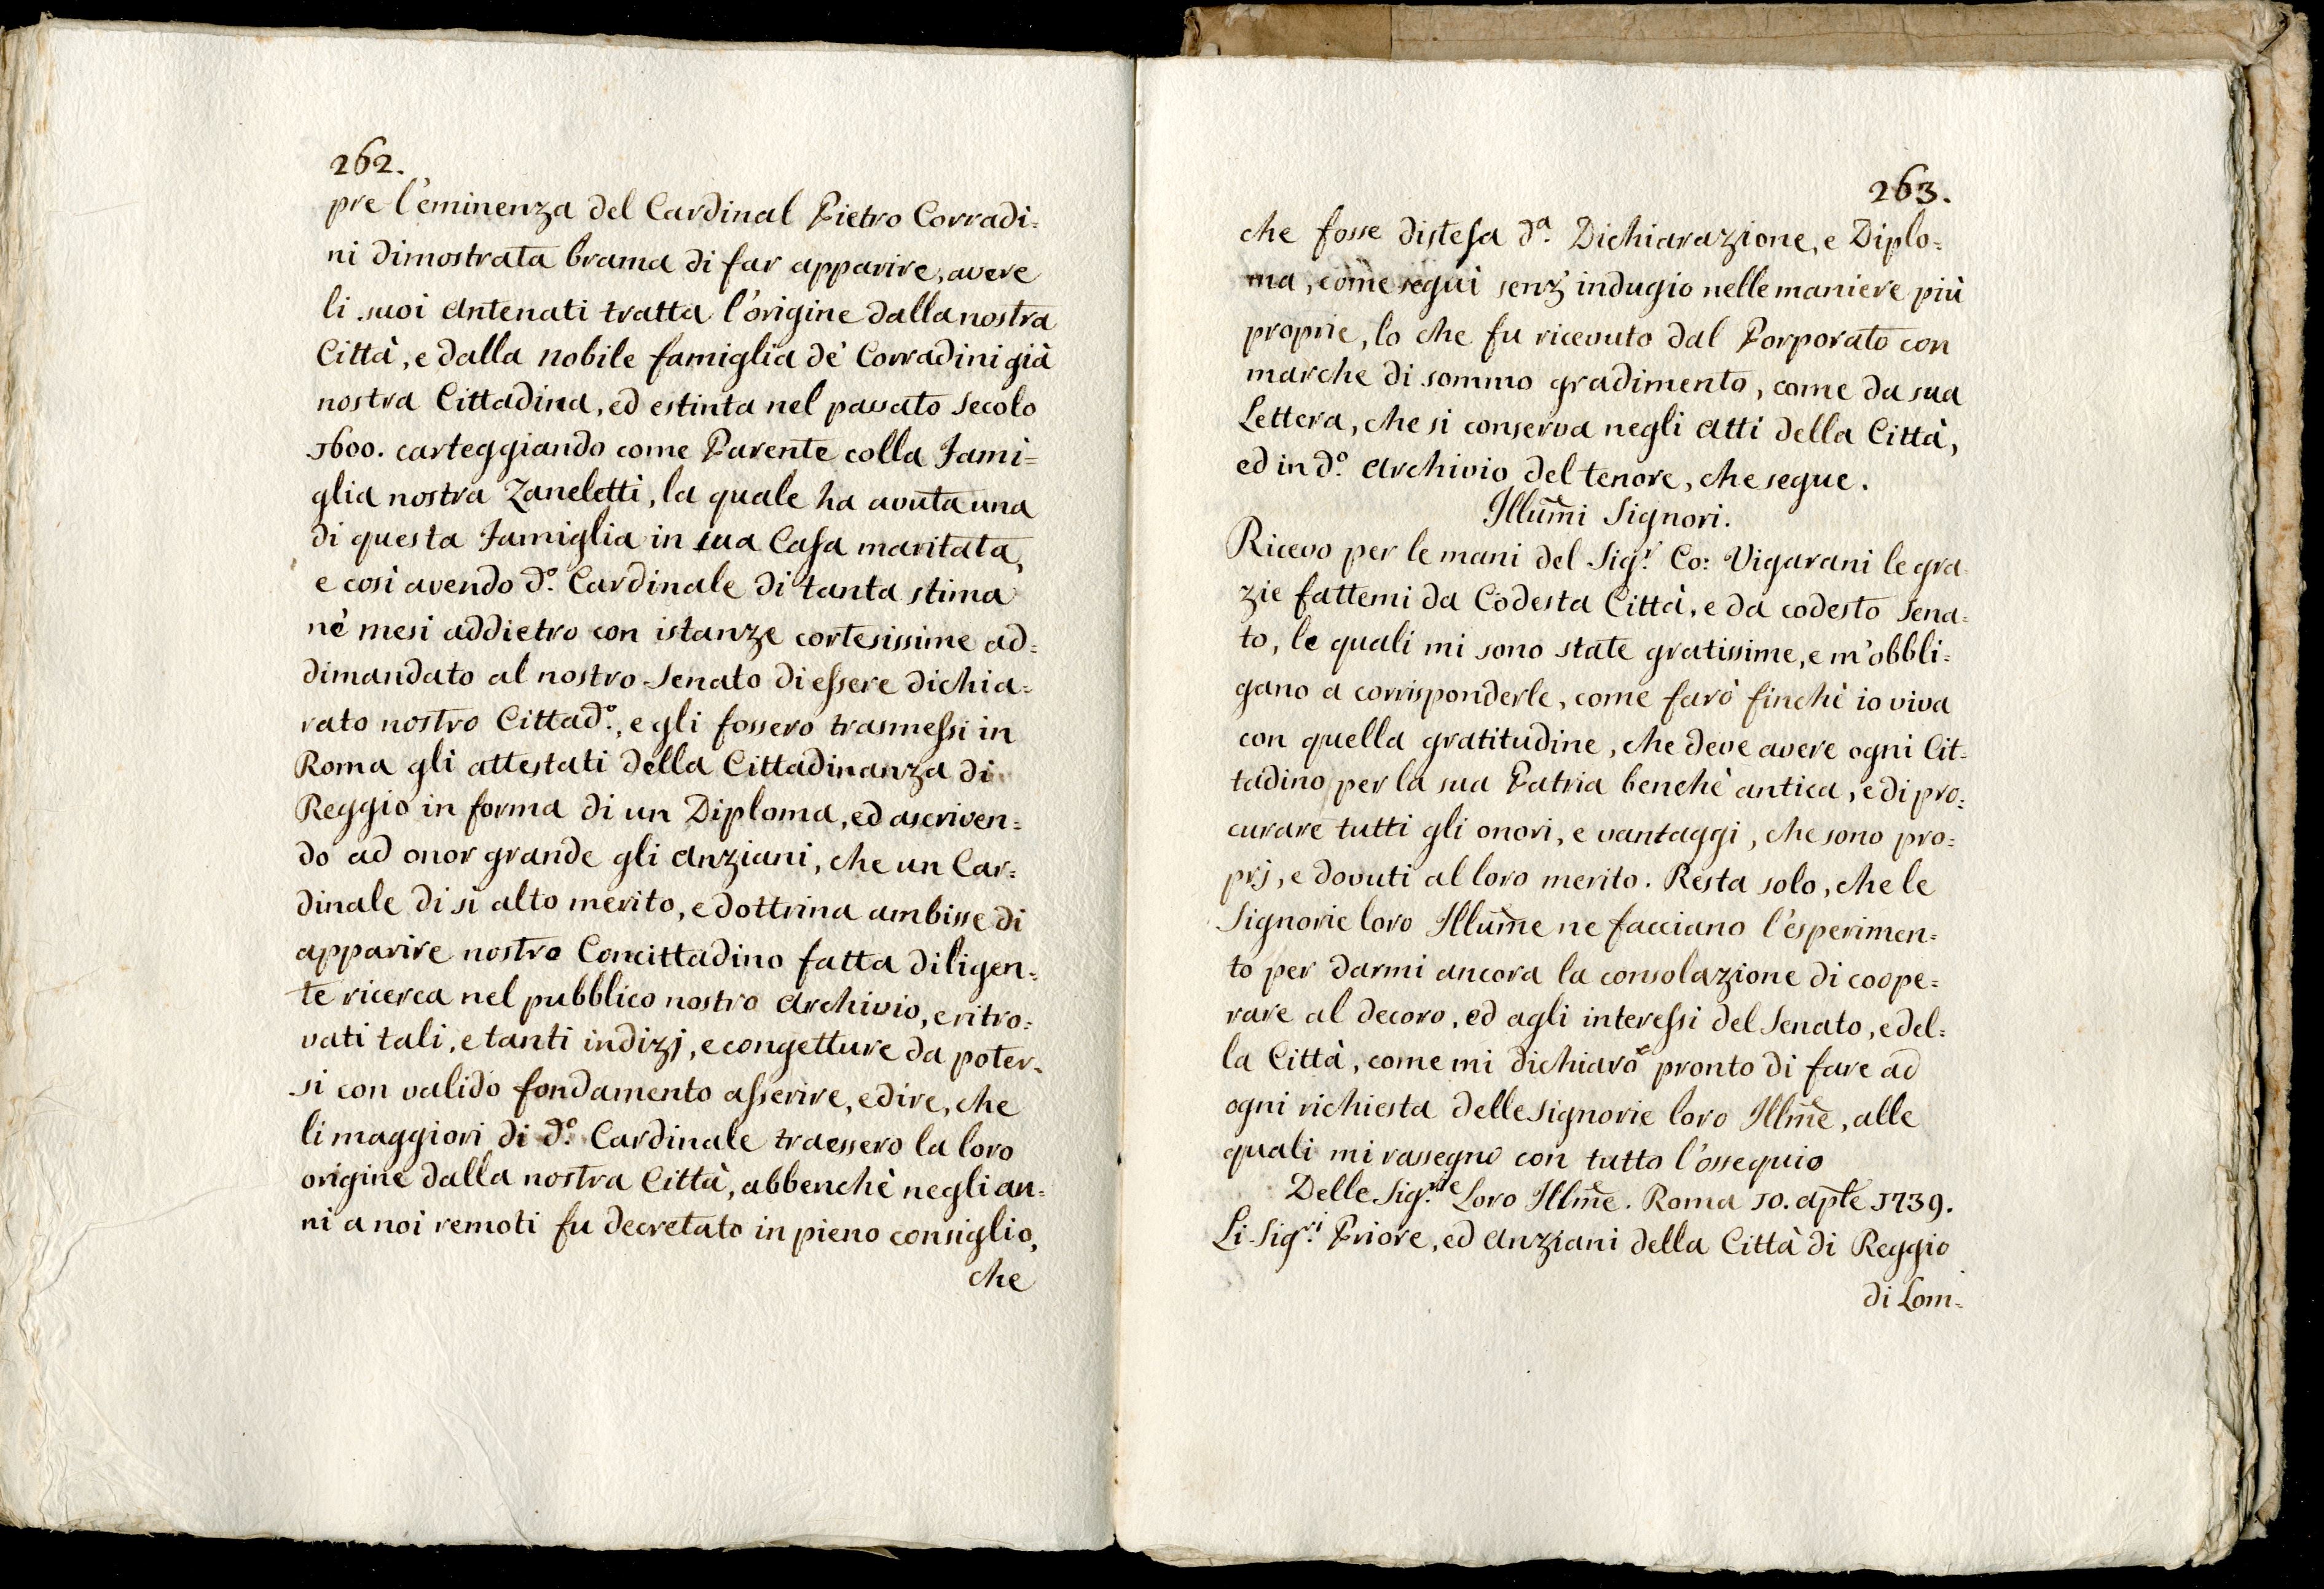 262.
pre l'eminenza del Cardinal Pietro Corradi=
ni dimostrata brama di far apparire, avere
li suoi Antenati tratta l'origine dalla nostra
Città, e dalla nobile famiglia de' Corradini già
nostra Cittadina, ed estinta nel passato Secolo
1600. carteggiando come Parente colla Fami=
glia nostra Zaneletti, la quale ha avuta una
di questa Famiglia in sua Casa maritata,
e così avendo d.º Cardinale di tanta stima
nè mesi addietro con istanze cortesissime ad=
dimandato al nostro Senato di essere dichia=
rato nostro Cittad.º, e gli fossero trasmessi in
Roma gli attestati della Cittadinanza di
Reggio in forma di un Diploma, ed ascriven=
do ad onor grande gli Anziani, che un Car=
dinale di sì alto merito, e dottrina ambisse di
apparire nostro Concittadino fatta diligen=
te ricerca nel pubblico nostro Archivio, e ritro=
vati tali, e tanti indizj, e congetture da poter=
si con valido fondamento asserire, e dire, che
li maggiori di d.º Cardinale traessero la loro
origine dalla nostra Città, abbenchè negli an=
ni a noi remoti fu decretato in pieno consiglio,
che
263.
che fosse distesa d.ª Dichiarazione, e Diplo=
ma, come seguì senz' indugio nelle maniere più
proprie, lo che fu ricevuto dal Porporato con
marche di sommo gradimento, come da sua
Lettera, che si conserva negli Atti della Città,
ed in d.º Archivio del tenore, che segue.
Illum̃i Signori.
Ricevo per le mani del Sig.r Co: Vigarani le gra
zie fattemi da Codesta Città, e da codesto Sena=
to, le quali mi sono state gratissime, e m'obbli=
gano a corrisponderle, come farò finchè io viva
con quella gratitudine, che deve avere ogni Cit=
tadino per la sua Patria benchè antica, e di pro=
curare tutti gli onori, e vantaggi, che sono pro=
prj, e dovuti al loro merito. Resta solo, che le
Signorie loro Illum̃e ne facciano l'esperimen=
to per darmi ancora la consolazione di coope=
rare al decoro, ed agli interessi del Senato, e del=
la Città, come mi dichiaro pronto di fare ad
ogni richiesta delle Signorie loro Illm̃e, alle
quali mi rassegno con tutto l'ossequio
Delle Sig.rie Loro Illm̃e. Roma 10. aple 1739.
Li Sig.ri Priore, ed Anziani della Città di Reggio
di Lom=